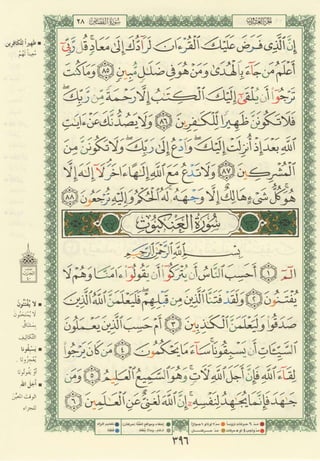 سُورَةُ القَصَصِ ٢٨
إِنَّ ٱلَّذِى فَرَضَ عَلَيْكَ ٱلْقُرْءَانَ لَرَآدُّكَ إِلَىٰ مَعَادٍ قُل رَّبِّىٓ
أَعْلَمُ مَن جَآءَ بِٱلْهُدَىٰ وَمَنْ هُوَ فِى ضَلَٰلٍ مُّبِينٍ ٨٥ وَمَا كُنتَ
تَرْجُوٓا۟ أَن يُلْقَىٰٓ إِلَيْكَ ٱلْكِتَٰبُ إِلَّا رَحْمَةً مِّن رَّبِّكَ
فَلَا تَكُونَنَّ ظَهِيرًا لِّلْكَٰفِرِينَ ٨٦ وَلَا يَصُدُّنَّكَ عَنْ ءَايَٰتِ
ٱللَّهِ بَعْدَ إِذْ أُنزِلَتْ إِلَيْكَ وَٱدْعُ إِلَىٰ رَبِّكَ وَلَا تَكُونَنَّ مِنَ
ٱلْمُشْرِكِينَ ٨٧ وَلَا تَدْعُ مَعَ ٱللَّهِ إِلَٰهًا ءَاخَرَ لَآ إِلَٰهَ إِلَّا
هُوَ كُلُّ شَىْءٍ هَالِكٌ إِلَّا وَجْهَهُۥ لَهُ ٱلْحُكْمُ وَإِلَيْهِ تُرْجَعُونَ ٨٨
سُورَةُ العَنكَبُوتِ
بِسْمِ ٱللَّهِ ٱلرَّحْمَٰنِ ٱلرَّحِيمِ
الٓمٓ ١ أَحَسِبَ ٱلنَّاسُ أَن يُتْرَكُوٓا۟ أَن يَقُولُوٓا۟ ءَامَنَّا وَهُمْ لَا
يُفْتَنُونَ ٢ وَلَقَدْ فَتَنَّا ٱلَّذِينَ مِن قَبْلِهِمْ فَلَيَعْلَمَنَّ ٱللَّهُ ٱلَّذِينَ
صَدَقُوا۟ وَلَيَعْلَمَنَّ ٱلْكَٰذِبِينَ ٣ أَمْ حَسِبَ ٱلَّذِينَ يَعْمَلُونَ
ٱلسَّيِّـَٔاتِ أَن يَسْبِقُونَا سَآءَ مَا يَحْكُمُونَ ٤ مَن كَانَ يَرْجُوا۟
لِقَآءَ ٱللَّهِ فَإِنَّ أَجَلَ ٱللَّهِ لَـَٔاتٍ وَهُوَ ٱلسَّمِيعُ ٱلْعَلِيمُ ٥ وَمَن
جَٰهَدَ فَإِنَّمَا يُجَٰهِدُ لِنَفْسِهِۦٓ إِنَّ ٱللَّهَ لَغَنِىٌّ عَنِ ٱلْعَٰلَمِينَ ٦
ظهيراً للكافرين
مُعيناً لهم
لا يُفتَنون
لا يُمتَحَنون
يسبقونا
أجل الله
الوقت المعيّن
للجزاء
٣٩٦